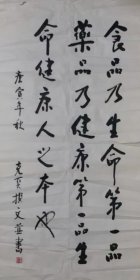 食品乃生命第一品
藥品乃健康第一品生
命健康人之本也
庚寅年秋
克真撰文並書